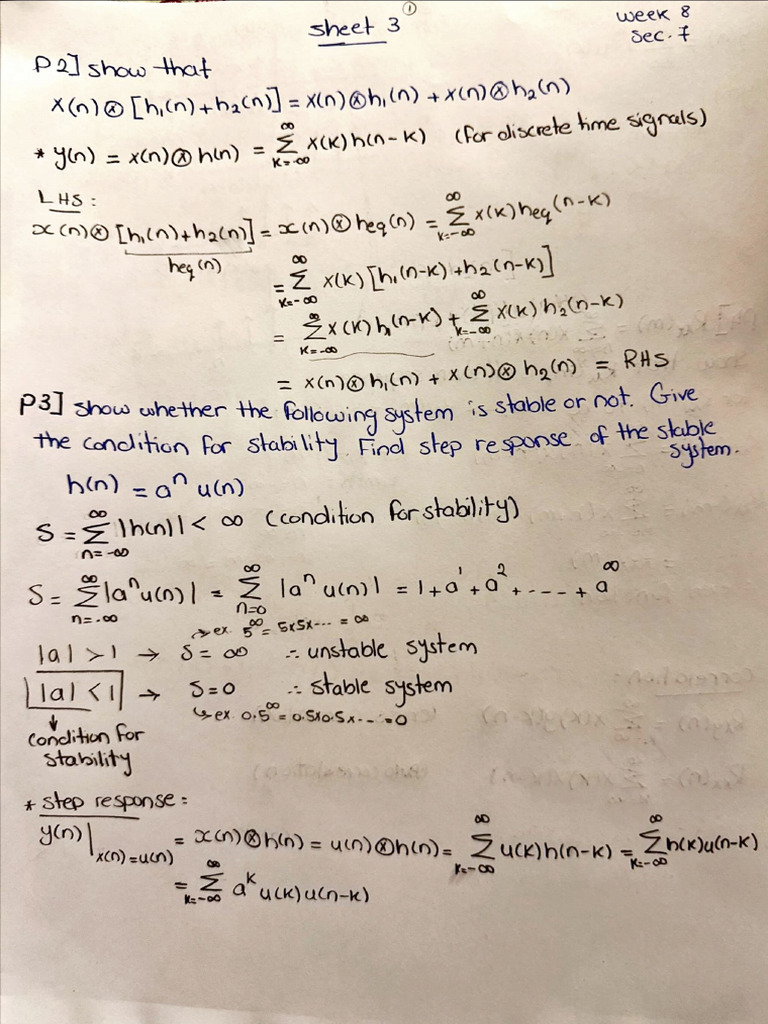 ①
sheet 3
week 8
sec. 7
P2] show that
x(n) ⊗ [h₁(n) + h₂(n)] = x(n) ⊗ h₁(n) + x(n) ⊗ h₂(n)
* y(n) = x(n) ⊗ h(n) = ∑_{k=-∞}^{∞} x(k) h(n-k) (for discrete time signals)
LHS:
x(n) ⊗ [h₁(n) + h₂(n)] = x(n) ⊗ heq(n) = ∑_{k=-∞}^{∞} x(k) heq(n-k)
heq(n)
= ∑_{k=-∞}^{∞} x(k) [h₁(n-k) + h₂(n-k)]
= ∑_{k=-∞}^{∞} x(k) h₁(n-k) + ∑_{k=-∞}^{∞} x(k) h₂(n-k)
= x(n) ⊗ h₁(n) + x(n) ⊗ h₂(n) = RHS
P3] show whether the following system is stable or not. Give
the condition for stability. Find step response of the stable
system.
h(n) = aⁿ u(n)
S = ∑_{n=-∞}^{∞} |h(n)| < ∞ (condition for stability)
S = ∑_{n=-∞}^{∞} |aⁿ u(n)| = ∑_{n=0}^{∞} |aⁿ u(n)| = 1 + a¹ + a² + .... + a^∞
↳ ex 5^∞ = 5x5x... = ∞
|a| > 1 → S = ∞ ∴ unstable system
|a| < 1 → S = 0 ∴ stable system
↳ ex 0.5^∞ = 0.5x0.5x... = 0
↓
condition for
stability
* step response:
y(n)|_{x(n)=u(n)} = x(n) ⊗ h(n) = u(n) ⊗ h(n) = ∑_{k=-∞}^{∞} u(k) h(n-k) = ∑_{k=-∞}^{∞} h(k) u(n-k)
= ∑_{k=-∞}^{∞} a^k u(k) u(n-k)